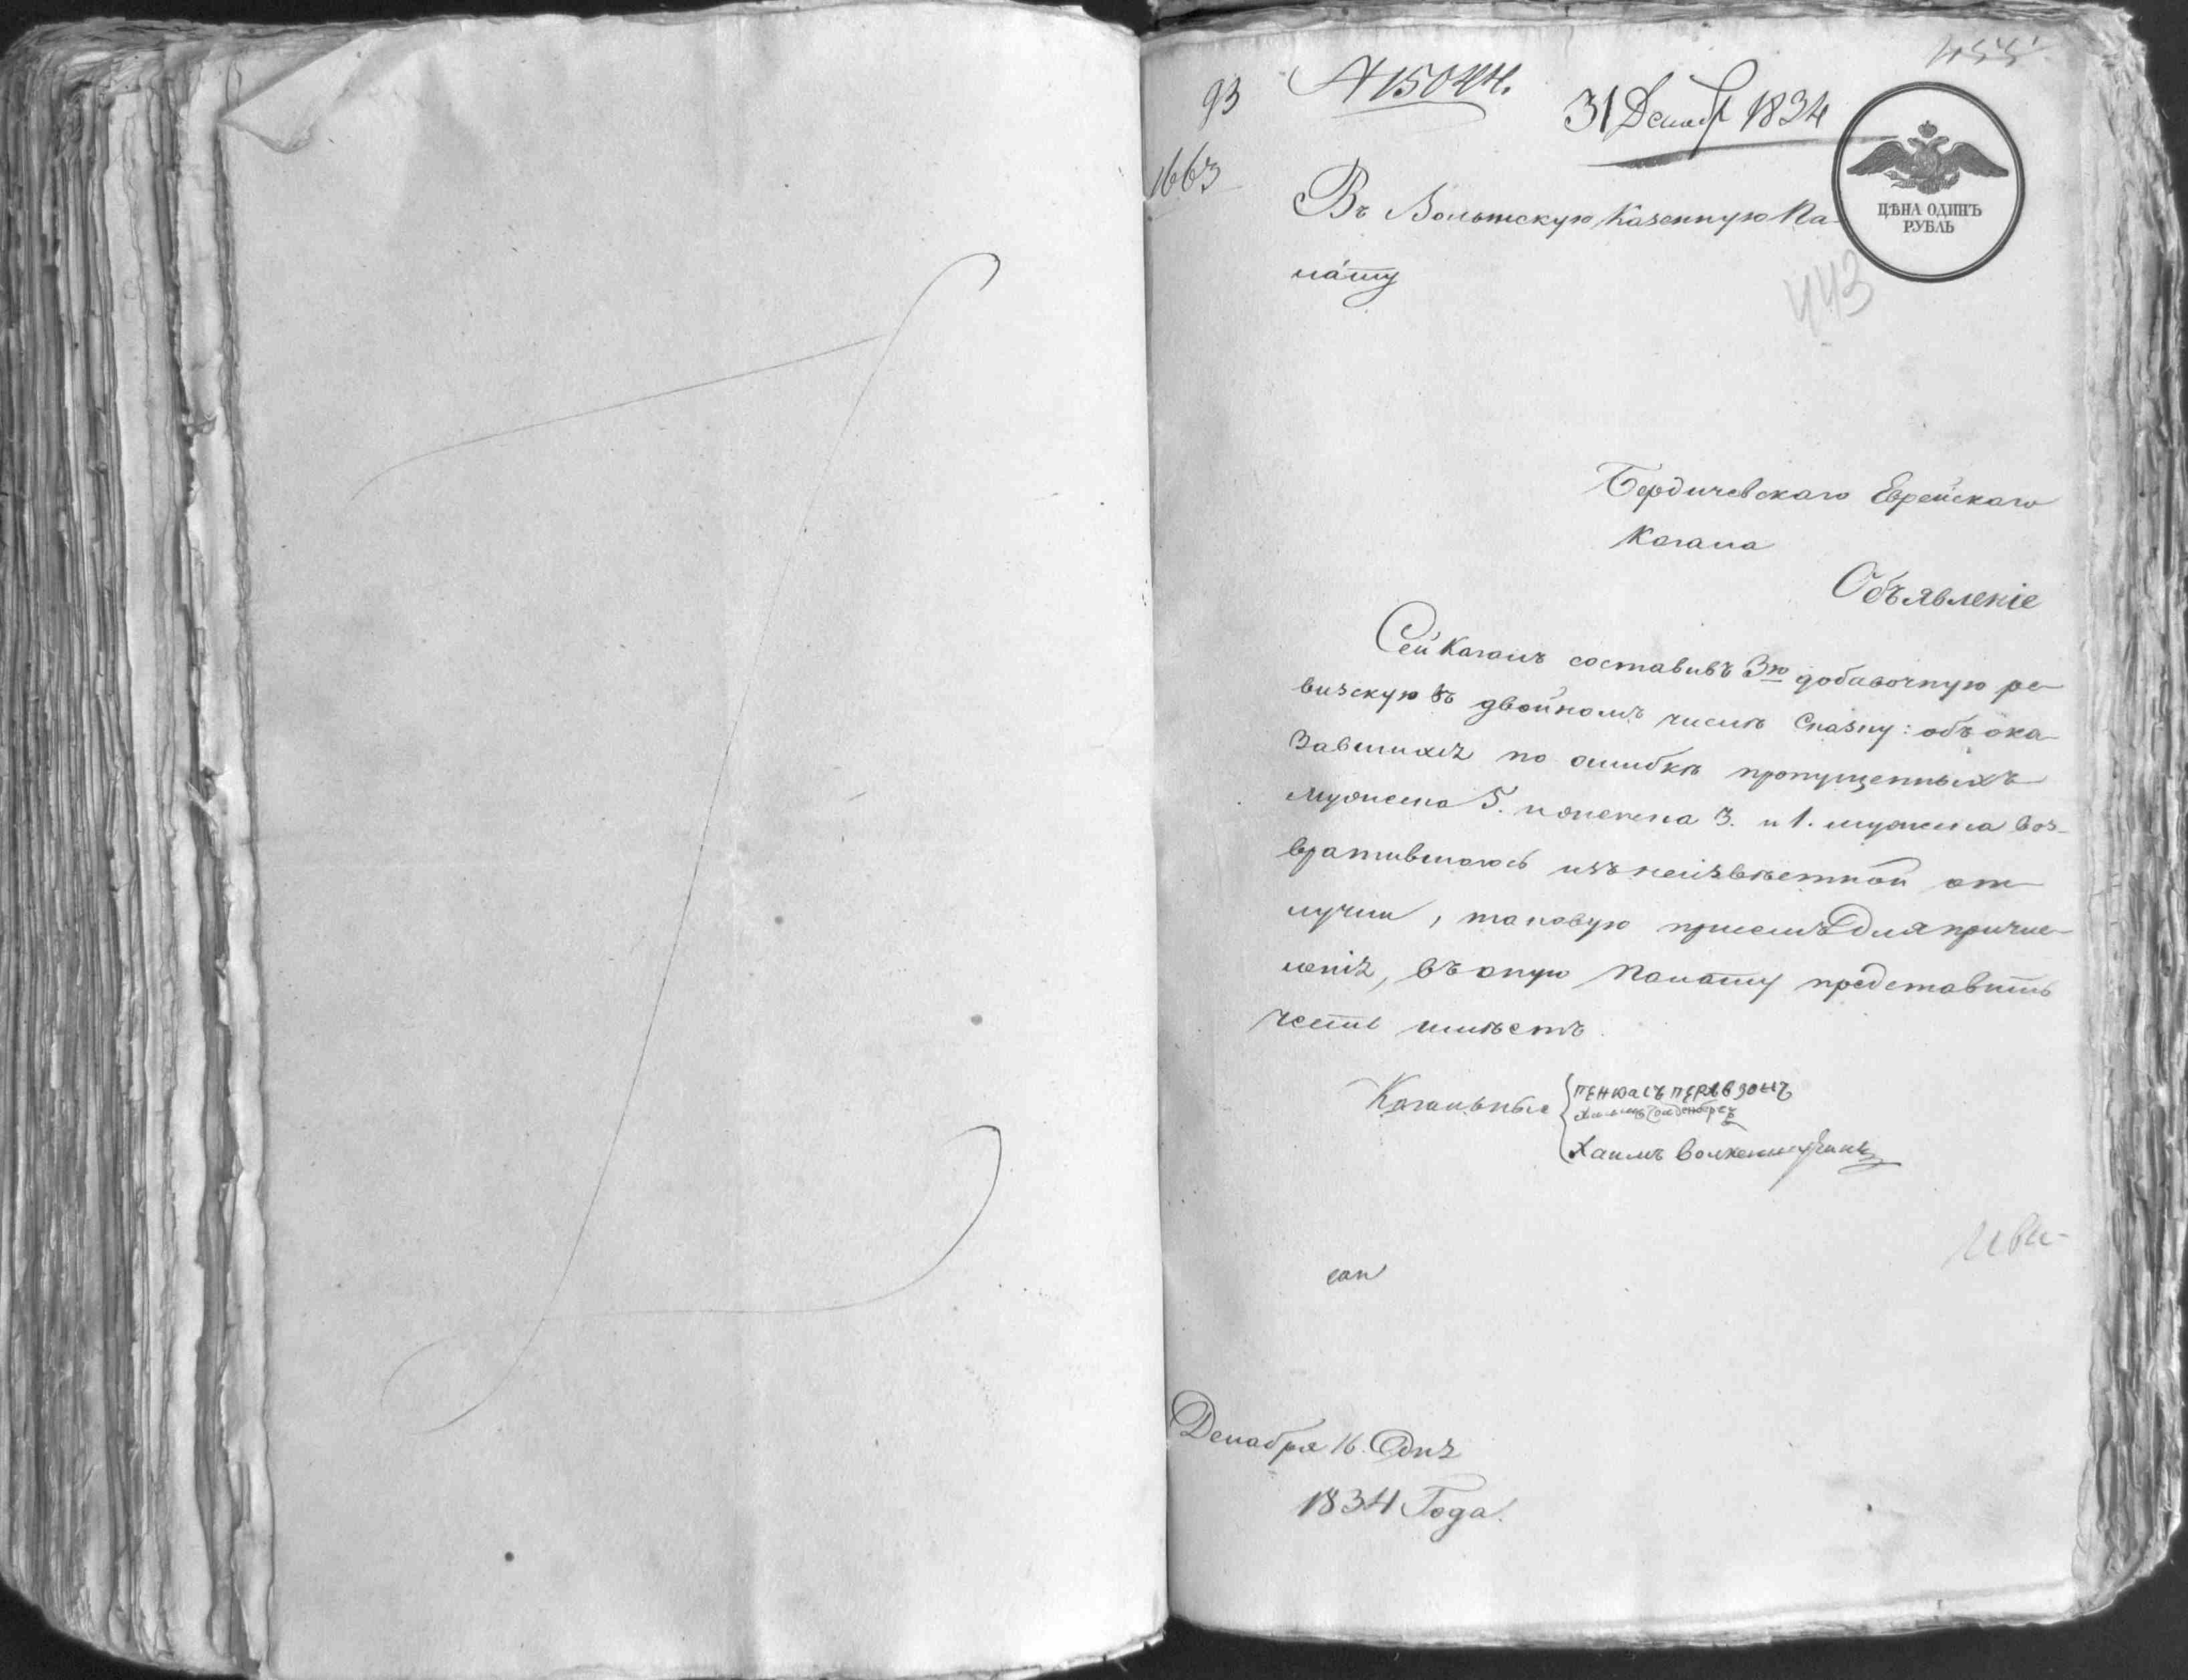 455
93
№ 15044.
31 Декабр 1834
1663
ЦѢНА ОДИНЪ
РУБЛЬ
Въ Волынскую Казенную Па-
лату
443
Бердичевскаго Еврейскаго
Кагала
Объявленіе
Сей Кагалъ составивъ 3ю добавочную ре-
визскую въ двойномъ числѣ Сказку: объ ока-
завшихся по ошибкѣ пропущенныхъ
мужеска 5. и женска 3. и 1. мужеска воз-
вратившагось изъ неизвѣстной от-
лучки, таковую присемъ для причис-
ленія, въ оную Палату представить
честь имѣетъ.
Кагальные
ПЕНЮАСЪ ПЕРЕВЗОНЪ
Хаимъ
Декабря 16. Дня
1834 Года.